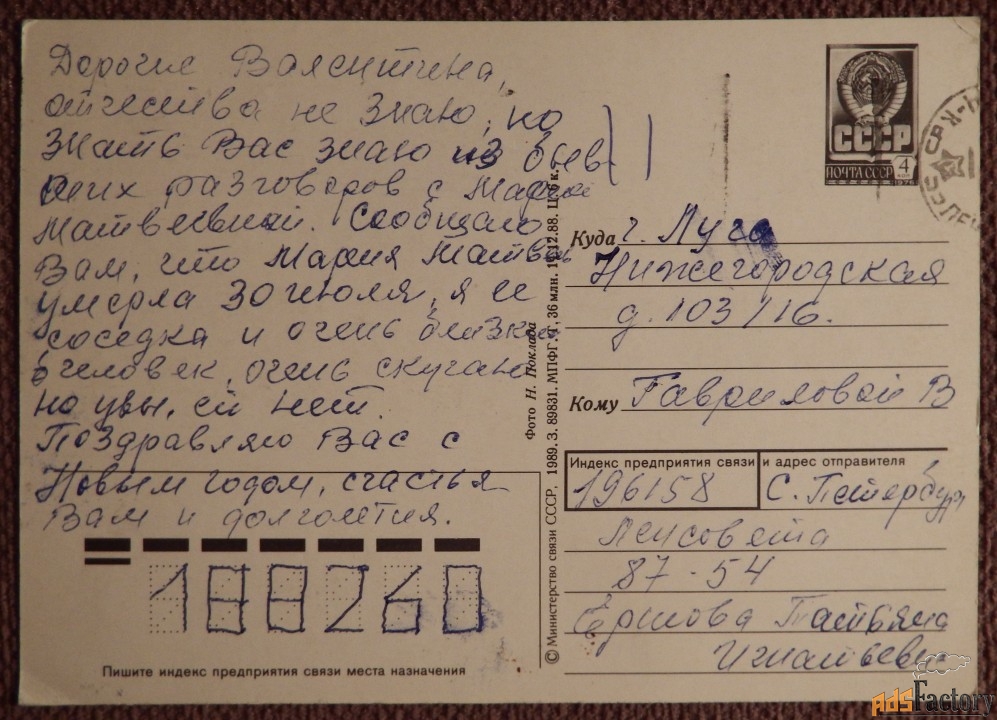 Дорогие Валентина,
отчества не знаю, но
знать Вас знаю из быв-
ших разговоров с Марией
Матвеевной. Сообщаю
Вам, что Мария Матве
умерла 30 июля, я ее
соседка и очень близкий
человек, очень скучаю
но увы, ей нет.
Поздравляю Вас с
Новым годом, счастья
Вам и долголетия.
188260
Пишите индекс предприятия связи места назначения
Фото Н. Поклада
© Министерство связи СССР, 1989. З. 89831. МПФГ.
36 млн.
12.88.
СССР
4
КОП
ПОЧТА СССР
1976
Куда г. Луга
Нижегородская
д. 103/16.
Кому Гавриловой В
Индекс предприятия связи и адрес отправителя
196158 С. Петербург
Ленсовета
87-54
Ершова Татьяна
Игнатьевн
AdsFactory